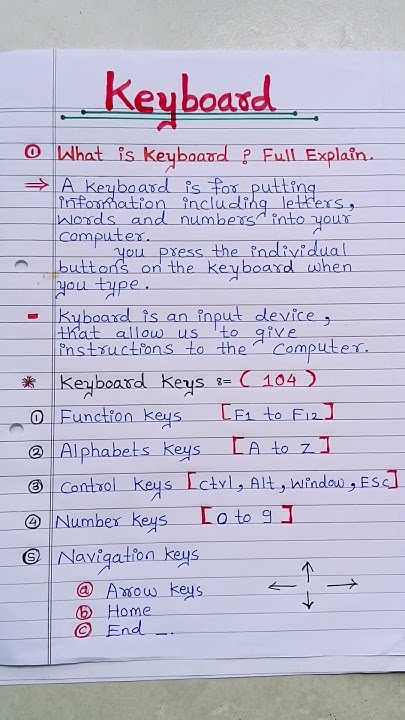 Keyboard
① What is Keyboard ? Full Explain.
⇒ A keyboard is for putting
information including letters,
words and numbers into your
computer.
you press the individual
buttons on the keyboard when
you type.
- Kyboard is an input device,
that allow us to give
instructions to the computer.
* Keyboard Keys := ( 104 )
① Function keys [F1 to F12]
② Alphabets keys [A to Z]
③ Control Keys [Ctrl, Alt, Window, Esc]
④ Number keys [0 to 9]
⑤ Navigation keys
ⓐ Arrow keys
ⓑ Home
ⓒ End _.